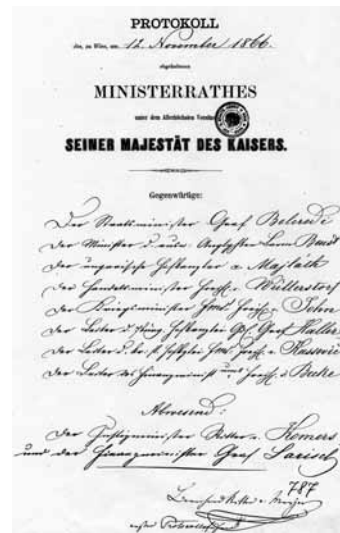 PROTOKOLL
des, zu Wien, am 12. November 1866.
abgehaltenen
MINISTERRATHES
unter dem Allerhöchsten Vorsitze
SEINER MAJESTÄT DES KAISERS.
Gegenwärtige:
Der Staatsminister Graf Belcredi
Der Minister d. ausw. Angelegten Baron Beust
Der ungarische Hofkanzler v. Majláth
Der Handelsminister Freih. v. Wüllerstorf
Der Kriegsminister Freih. v. John
Der Leiter d. Hofkanzlei Graf Haller
Der Leiter d. Freih. v. Kussevic
Der Leiter des Finanzminist Freih. v. Becke
Abwesend:
Der Justizminister Ritter v. Komers
und der Finanzminister Graf Larisch
787
Bernhard Ritter v. Meyer